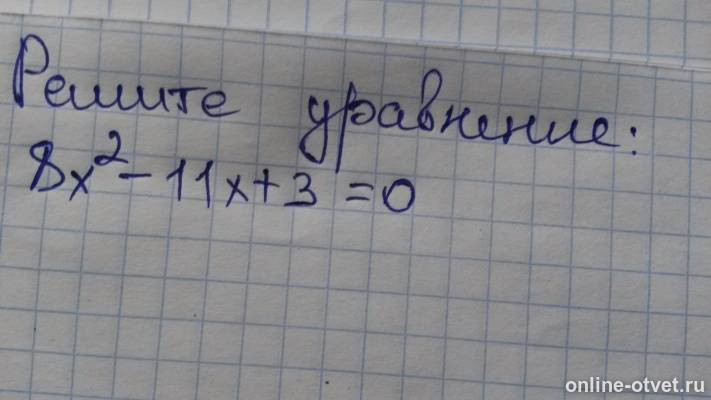 Решите уравнение:
8x² - 11x + 3 = 0
online-otvet.ru